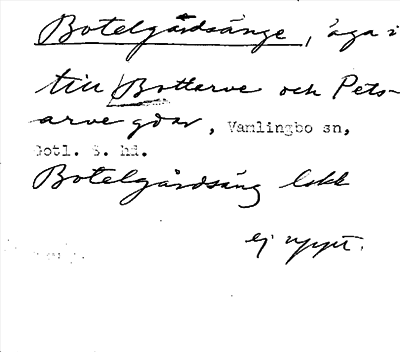 Botelgårdsänge, äga i
till Bottarve och Pets-
arve gdar, Vamlingbo sn,
Gotl. S. hd.
Botelgårdsäng lokk
ej uppt.